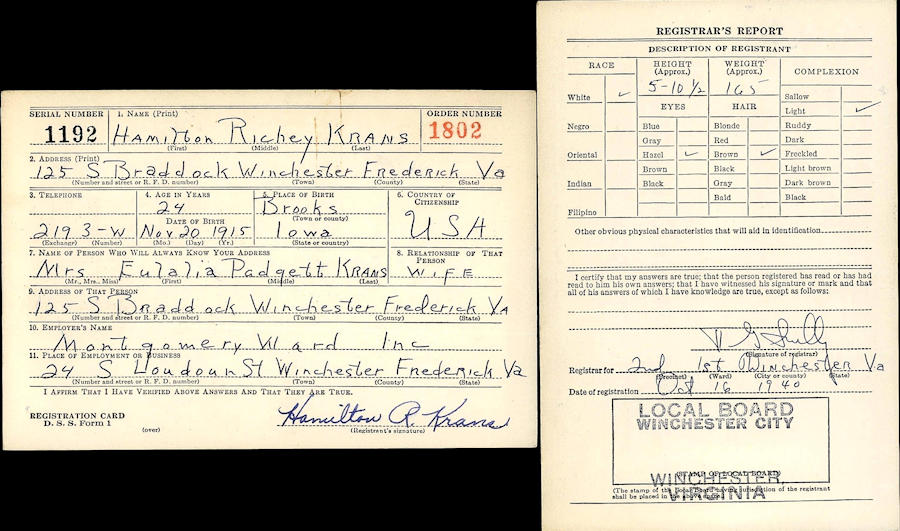 SERIAL NUMBER 1. NAME (Print) ORDER NUMBER
1192 HAMILTON RICHEY KRANS 1802
(First) (Middle) (Last)
2. ADDRESS (Print)
125 S Braddock Winchester Frederick Va
(Number and street or R. F. D. number) (Town) (County) (State)
3. TELEPHONE 4. AGE IN YEARS 5. PLACE OF BIRTH 6. COUNTRY OF CITIZENSHIP
24 Brooks
DATE OF BIRTH (Town or county) USA
2193-W Nov 20 1915 Iowa
(Exchange) (Number) (Mo.) (Day) (Yr.) (State or country)
7. NAME OF PERSON WHO WILL ALWAYS KNOW YOUR ADDRESS 8. RELATIONSHIP OF THAT PERSON
Mrs Eulalia Padgett KRANS WIFE
(Mr., Mrs., Miss) (First) (Middle) (Last)
9. ADDRESS OF THAT PERSON
125 S Braddock Winchester Frederick VA
(Number and street or R. F. D. number) (Town) (County) (State)
10. EMPLOYER'S NAME
Montgomery Ward Inc
11. PLACE OF EMPLOYMENT OR BUSINESS
24 S Loudoun St Winchester Frederick Va
(Number and street or R. F. D. number) (Town) (County) (State)
I AFFIRM THAT I HAVE VERIFIED ABOVE ANSWERS AND THAT THEY ARE TRUE.
REGISTRATION CARD
D. S. S. Form 1 (over) Hamilton R. Krans
(Registrant's signature)
REGISTRAR'S REPORT
DESCRIPTION OF REGISTRANT
RACE HEIGHT (Approx.) WEIGHT (Approx.) COMPLEXION
5-10 ½ 165
White ✓ EYES HAIR Sallow
Light ✓
Negro Blue Blonde Ruddy
Gray Red Dark
Oriental Hazel ✓ Brown ✓ Freckled
Brown Black Light brown
Indian Black Gray Dark brown
Bald Black
Filipino
Other obvious physical characteristics that will aid in identification
I certify that my answers are true; that the person registered has read or has had
read to him his own answers; that I have witnessed his signature or mark and that
all of his answers of which I have knowledge are true, except as follows:
(Signature of registrar)
Registrar for 2nd 1st Winchester Va
(Precinct) (Ward) (City or county) (State)
Date of registration Oct 16 1940
LOCAL BOARD
WINCHESTER CITY
(STAMP OF LOCAL BOARD)
WINCHESTER,
VIRGINIA
(The stamp of the Local Board having jurisdiction of the registrant
shall be placed in the above space.)